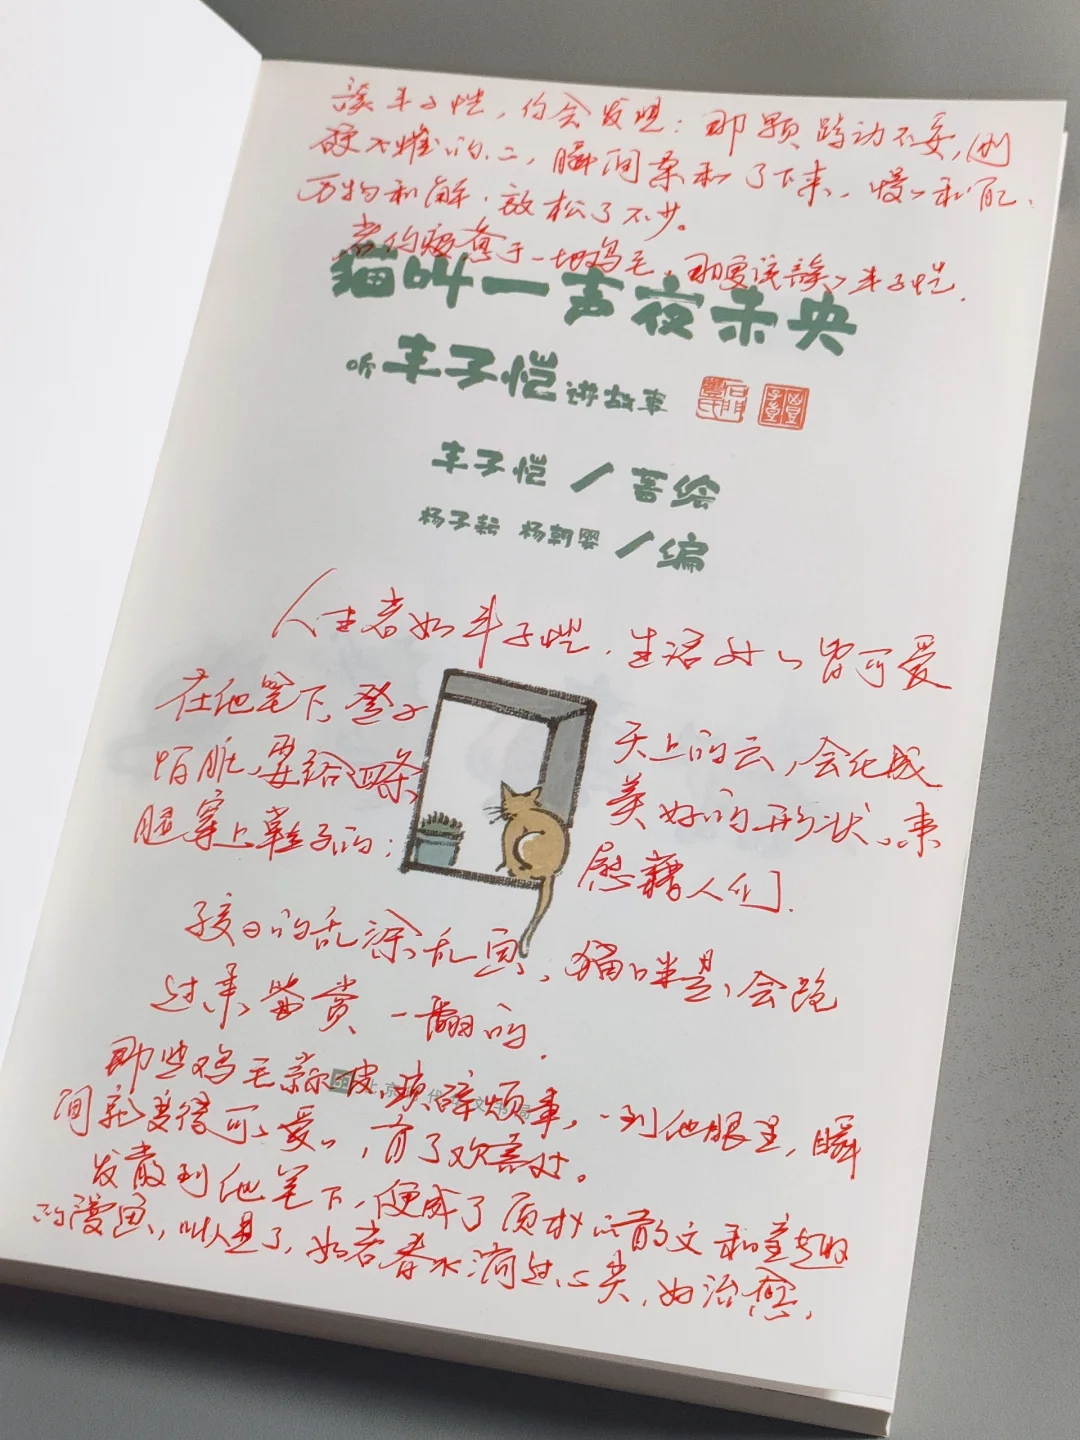 读丰子恺，你会发现：那颗跨动不妥，刚
硬不摧的心，瞬间柔和了下来，慢慢和
万物和解，放松了不少。
若你疲惫于一地鸡毛，那更该读读丰子恺.
猫叫一声夜未央
听丰子恺讲故事
丰子恺／著绘
杨子耘 杨朝婴／编
人生若如丰子恺，生活处处皆可爱
在他笔下，凳子
怕脏，要给四条
腿穿上鞋子的；
天上的云，会化成
美好的形状，来
慰藉人们.
孩子的乱涂乱画，猫咪是会跑
过来鉴赏一翻的.
那些鸡毛蒜皮，琐碎烦事，一到他眼里，瞬
间就变得可可爱爱，有了欢喜处。
北京 代 文书局
发散到他笔下，便成了质朴的散文和童趣
的漫画，叫人看了，如若春水淌过心尖，好治愈，